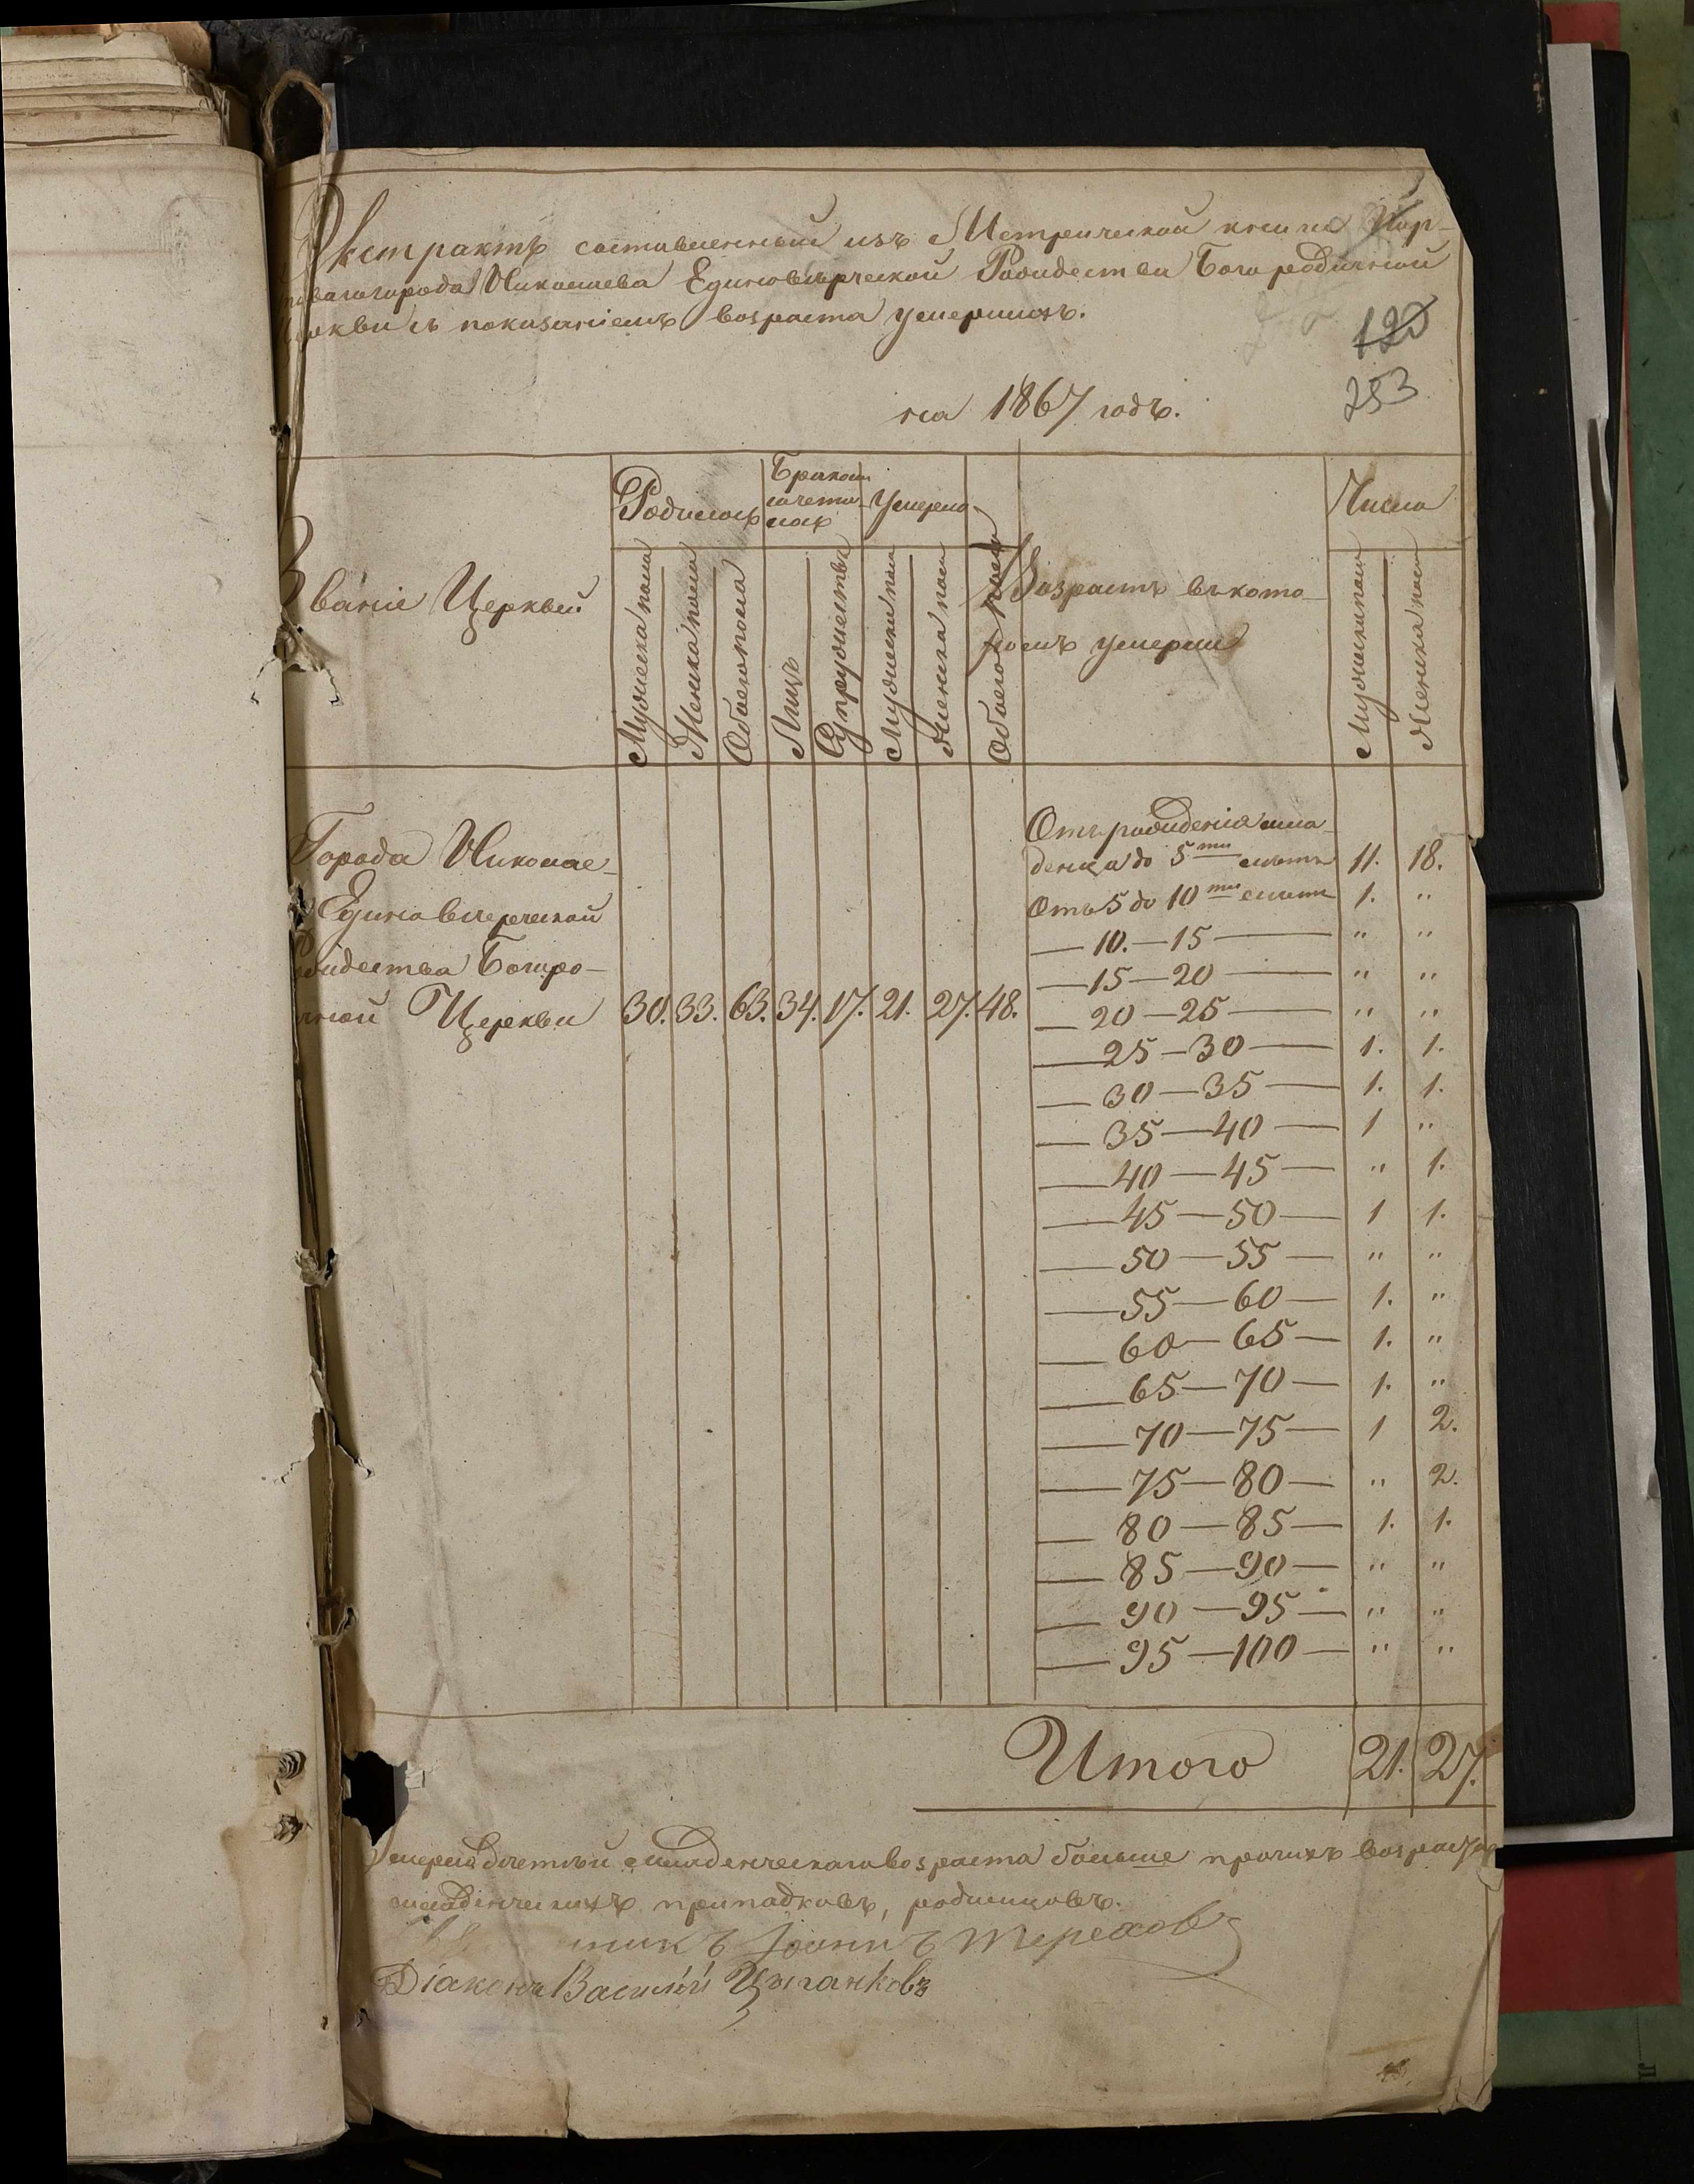 Экстрактъ составленный изъ Метрической книги Пор-
товаго города Николаева Единовѣрческой Рождества Богородичной
Церкви съ показаніемъ возраста умершихъ.
120
253
на 1867 годъ.
Званіе Церквей
Родилось
Бракомъ
сочета-
лось
Умерло
Возрастъ въ кото-
ромъ умерли
Число
Мужеска пола
Женска пола
Обоего пола
Лицъ
Супружествъ
Мужеска пола
Женска пола
Обоего пола
Мужеска пола
Женска пола
Города Николае-
Единоверческой
Рождества Богоро-
ичной Церкви 30. 33. 63. 34. 17. 21. 27. 48.
Отъ рожденія мла-
денца до 5ти лѣтъ 11. 18.
Отъ 5 до 10ти лѣтъ 1. "
— 10. — 15 — " "
— 15 — 20 — " "
— 20 — 25 — " "
— 25 — 30 — 1. 1.
— 30 — 35 — 1. 1.
— 35 — 40 — 1 "
— 40 — 45 — " 1.
— 45 — 50 — 1 1.
— 50 — 55 — " "
— 55 — 60 — 1. "
— 60 — 65 — 1. "
— 65 — 70 — 1. "
— 70 — 75 — 1 2.
— 75 — 80 — " 2.
— 80 — 85 — 1. 1.
— 85 — 90 — " "
— 90 — 95 — " "
— 95 — 100 — " "
Итого 21. 27.
Умерло дѣтей младенческаго возраста больше прочихъ возрастовъ
младенческихъ припадковъ, родимцовъ.
никъ Іоаннъ Тереховъ
Діаконъ Василій Цыганковъ